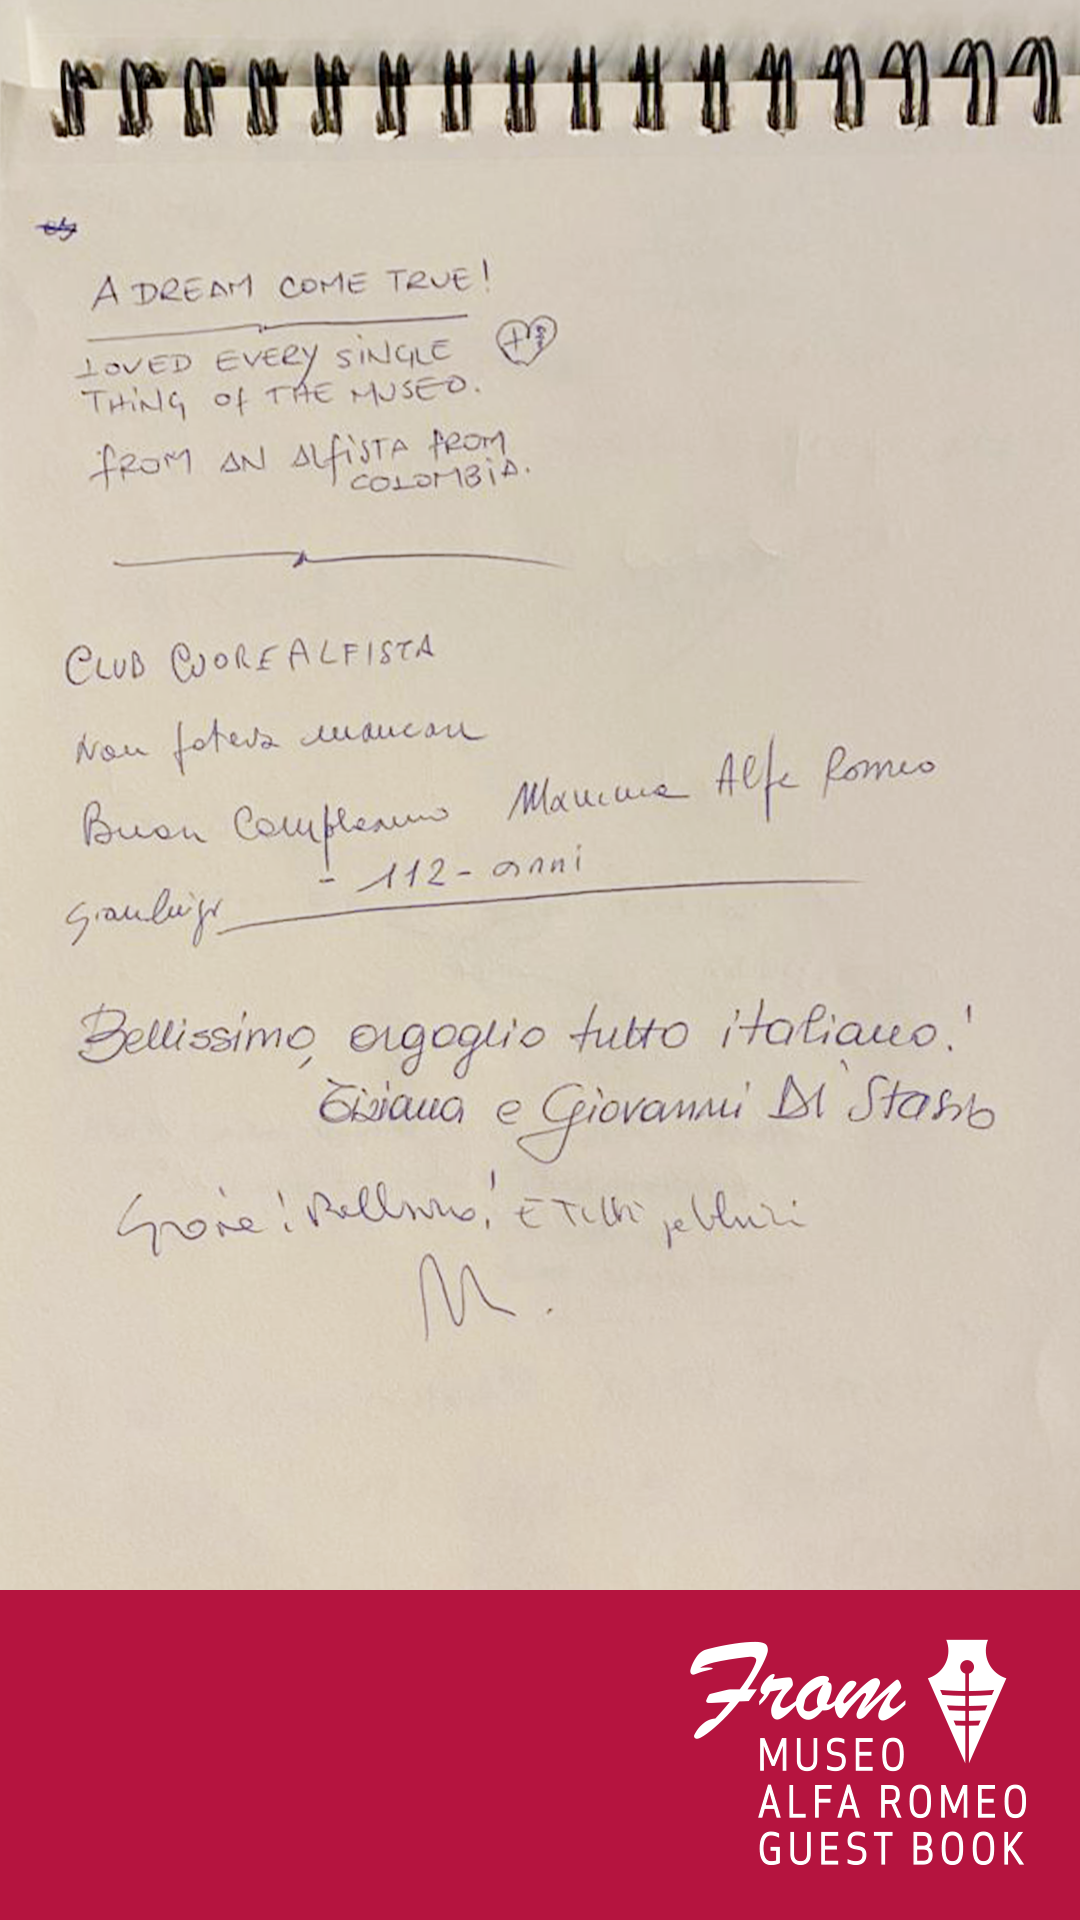 A DREAM COME TRUE!
LOVED EVERY SINGLE
THING Of THE MUSEO.
fROM AN ALfiSTA fROM
COLOMBiA.
CLUB CUORE ALFISTA
Non poteva mancare
Buon Compleanno Mamma Alfa Romeo
- 112 - anni
Gianluigi
Bellissimo, orgoglio tutto italiano!
Tiziana e Giovanni Di Stasio
E Tutti
From
MUSEO
ALFA ROMEO
GUEST BOOK